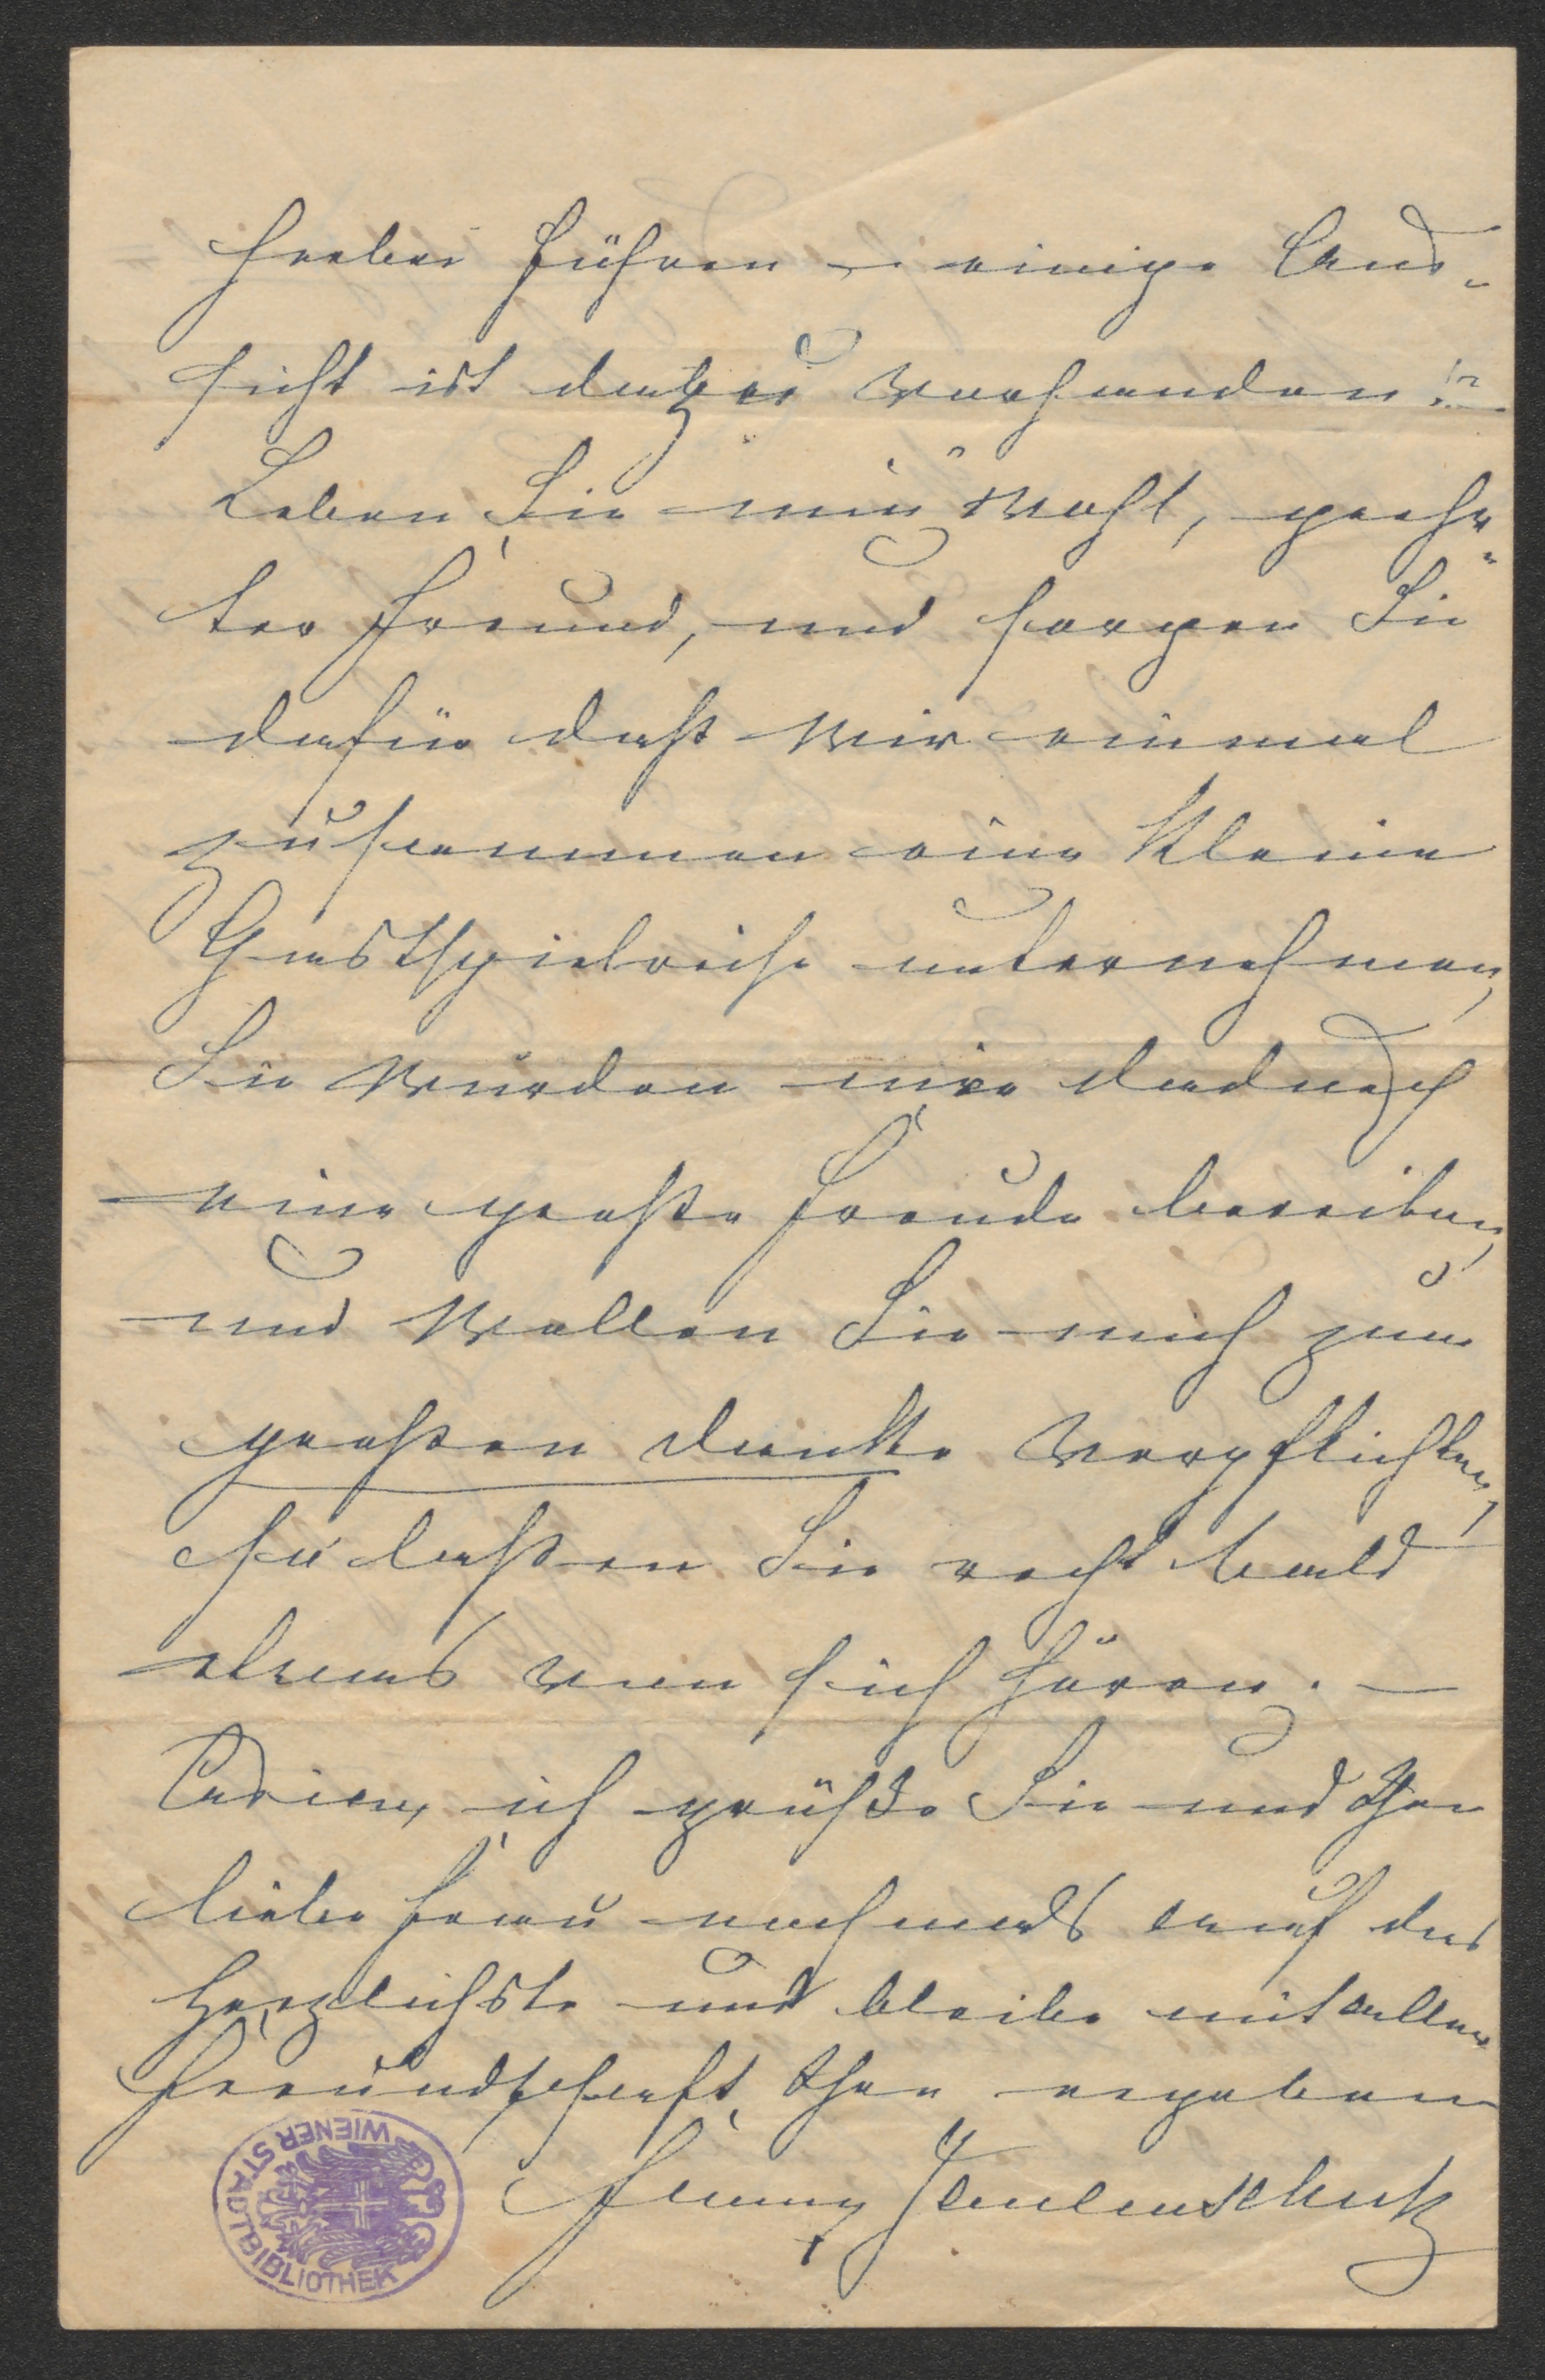 herbei führen – einige Aus-
sicht ist dazu vorhanden!?
Leben Sie nun wohl, geehr-
ter Freund, und sorgen Sie
dafür daß wir einmal
zusammen eine kleine
Gastspielreise unternehmen,
Sie würden mir dadurch
eine große Freude bereiten,
und wollen Sie mich zum
großen Danke verpflichten,
so laßen Sie recht bald
etwas von sich hören. –
Adieu, ich grüße Sie und Ihre
liebe Frau nochmals auf das
herzlichste und bleibe mit aller
Freundschaft, Ihre ergebene
WIENER STADTBIBLIOTHEK